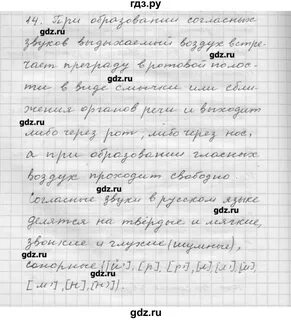 гдз.ру
14. При образовании согласных
звуков выдыхаемый воздух встре-
чает преграду в ротовой полос-
ти в виде смычки или сбли-
жения органов речи и выходит
либо через рот, либо через нос,
а при образовании гласных
воздух проходит свободно.
Согласные звуки в русском языке
делятся на твёрдые и мягкие,
звонкие и глухие (шумные),
сонорные ([й'], [р], [р'], [л], [л'],
[м'], [н], [н']).